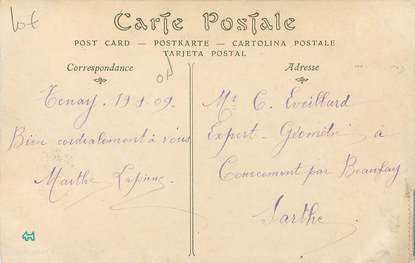 Carte Postale
POST CARD — POSTKARTE — CARTOLINA POSTALE
TARJETA POSTAL
Correspondance
Tenay. 19-1-09.
Bien cordialement à vous
Marthe
Adresse
Mr C. Eveillard
Expert-Géomètre à
Courcemont par Beaufay
Sarthe.